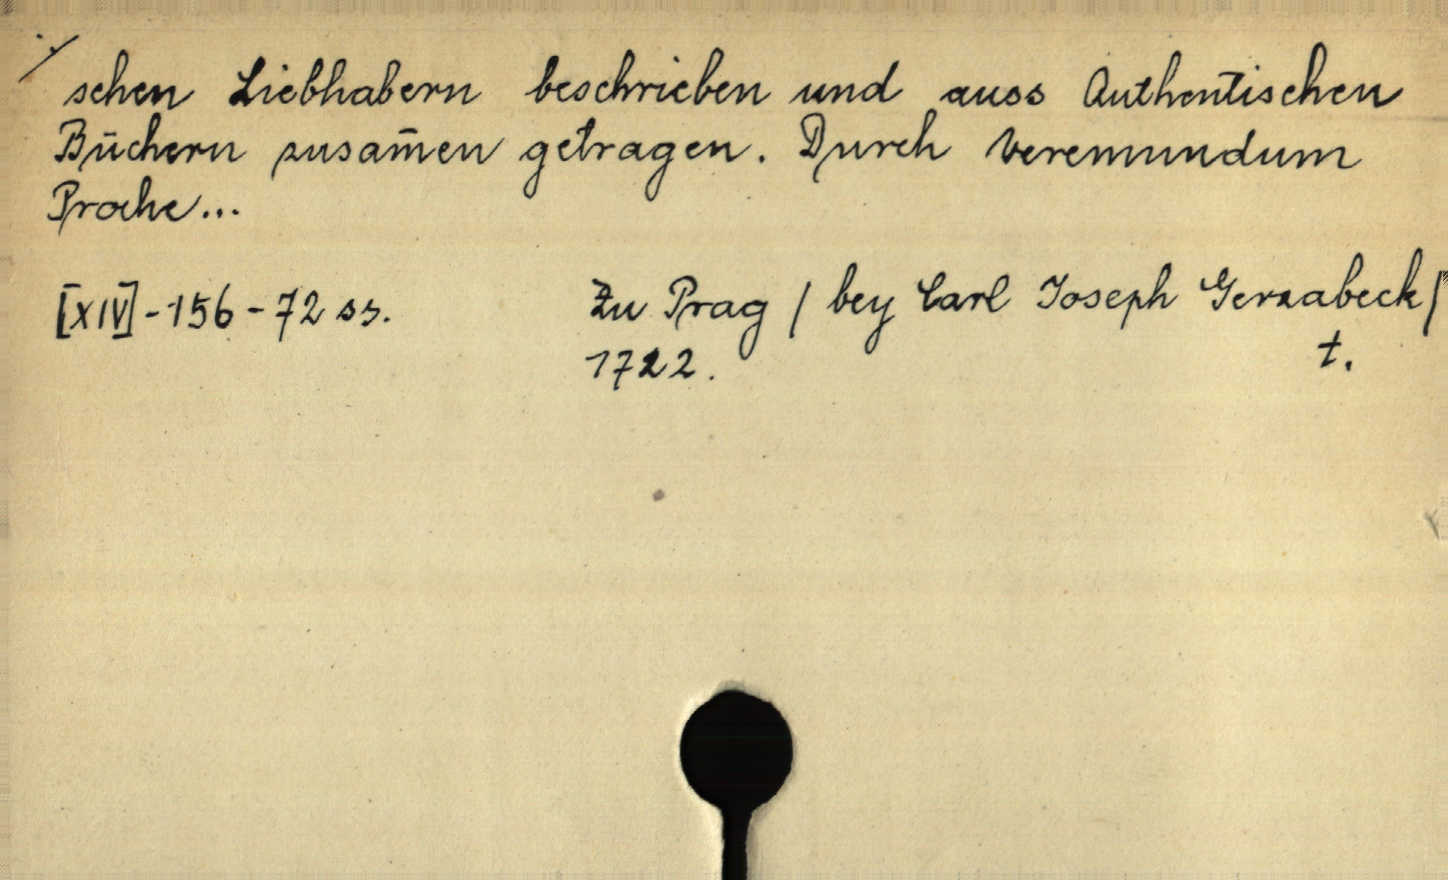 ./.
schen Liebhabern beschrieben und auss Authentischen
Büchern zusam̄en getragen. Durch Veremundum
Prohe...
[XIV] - 156 - 72 ss. Zu Prag / bey Carl Joseph Gerzabeck /
1722. t.